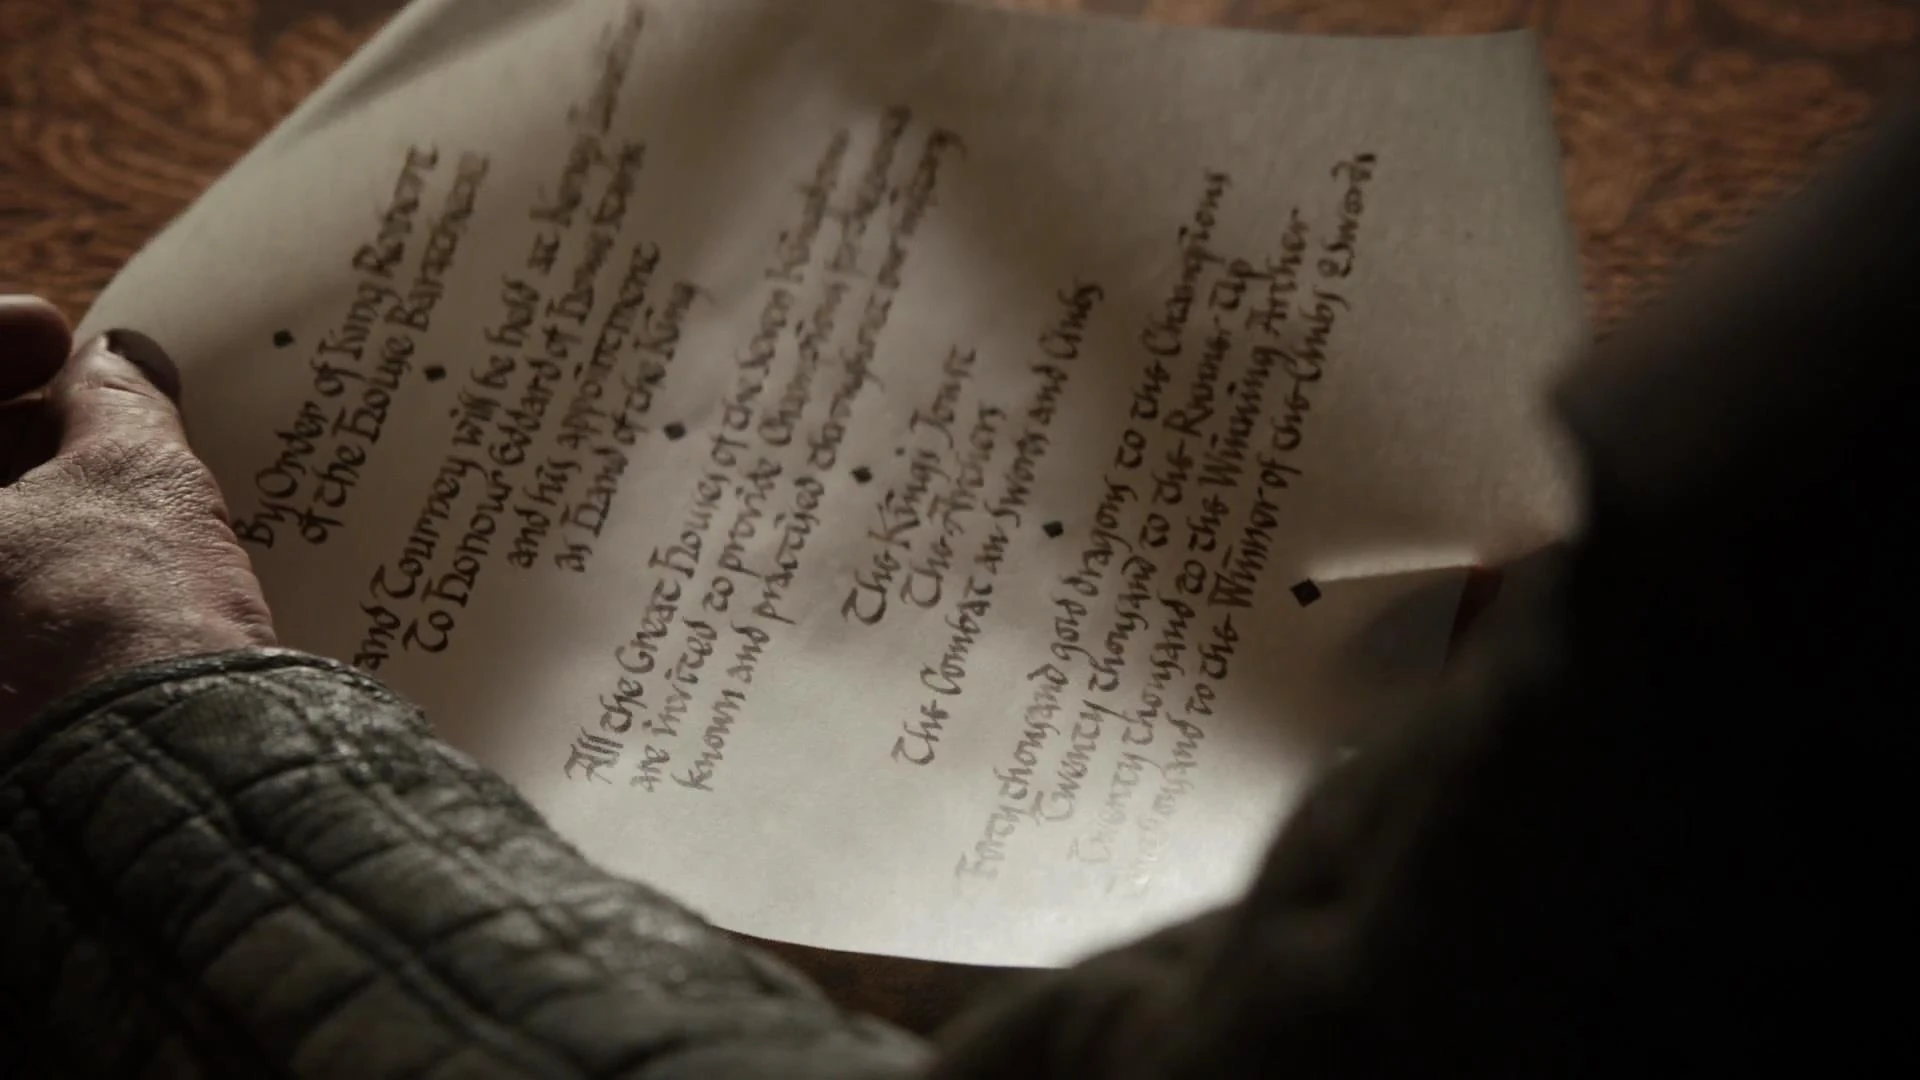 By Order of King Robert
of the House Baratheon
and Tourney will be held at Kings
To honour Eddard of House Stark
and his appointment
as Hand of the King
All the Great Houses of the Seven Kingdoms
are invited to provide Champions
known and practised throughout
The Kings Joust
The Archers
The Combat an Swords and Clubs
Forty thousand gold dragons to the Champions
Twenty thousand to the Runner Up
Twenty thousand to the Winning Archer
thousand to the Winner of the Clubs & Swords